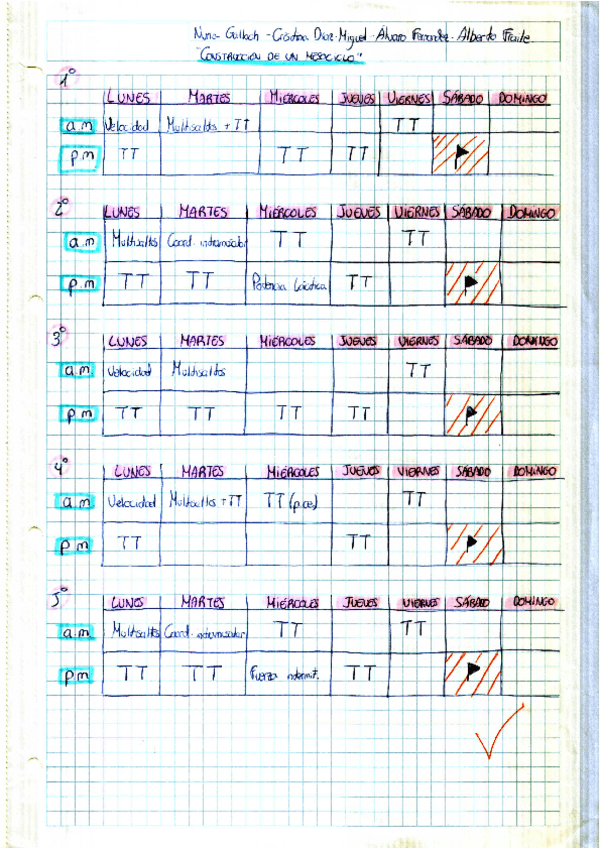 Cristina Díaz-Miguel - Álvaro Fernández - Alberto Fraile
"CONSTRUCCIÓN DE UN MESOCICLO"
1º
LUNES MARTES MIÉRCOLES JUEVES VIERNES SÁBADO DOMINGO
a.m Velocidad Multisaltos + TT TT
p.m TT TT TT
2º
LUNES MARTES MIÉRCOLES JUEVES VIERNES SÁBADO DOMINGO
a.m Multisaltos Coord. intramuscular TT TT
p.m TT TT Potencia Láctica TT
3º
LUNES MARTES MIÉRCOLES JUEVES VIERNES SÁBADO DOMINGO
a.m Velocidad Multisaltos TT
p.m TT TT TT TT
4º
LUNES MARTES MIÉRCOLES JUEVES VIERNES SÁBADO DOMINGO
a.m Velocidad Multisaltos + TT TT TT
p.m TT TT
5º
LUNES MARTES MIÉRCOLES JUEVES VIERNES SÁBADO DOMINGO
a.m Multisaltos Coord. intramuscular TT TT
p.m TT TT Fuerza intermit. TT